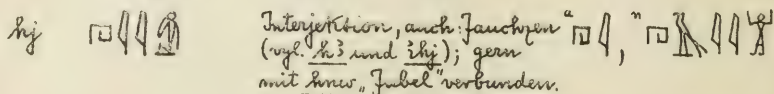 hj 𓉔𓇋𓇋 Interjektion, auch: Jauchzen 𓉔𓇋, 𓉔𓄿𓇋𓇋𓀠
(vgl. hꜣ und ꞽhj); gern
mit hnw „Jubel" verbunden.